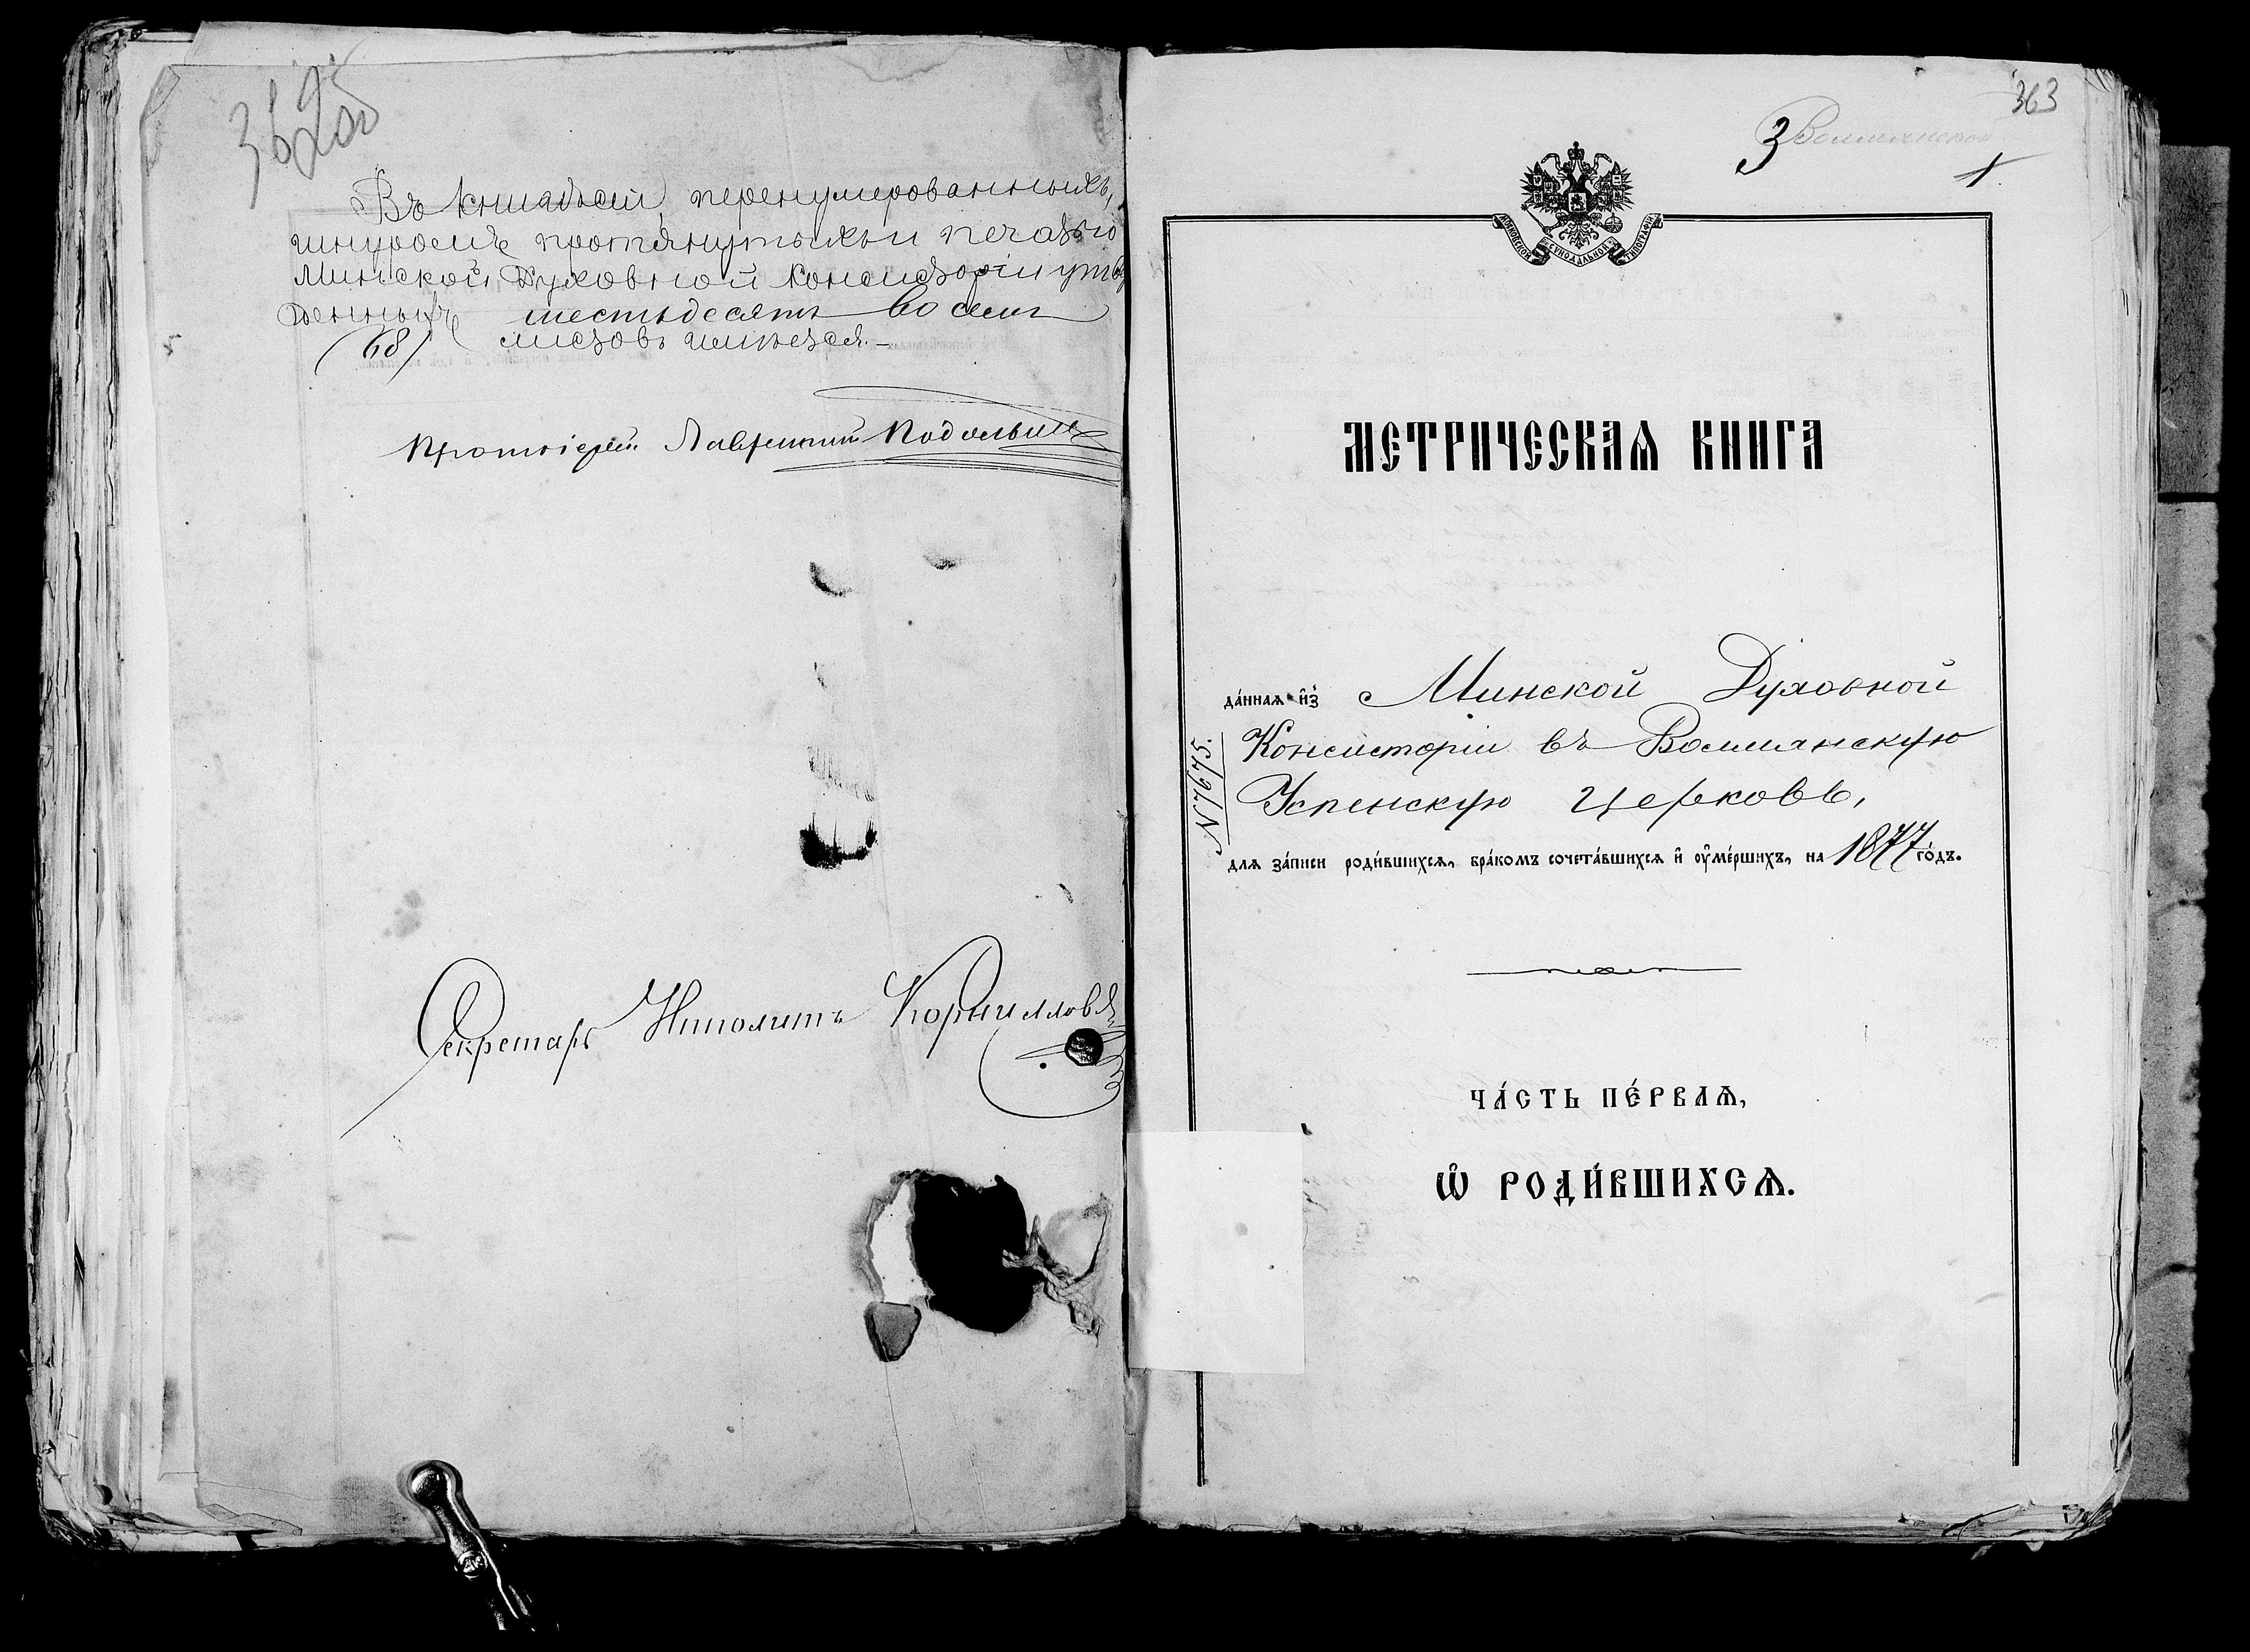 362об
Въ книгѣ сей, перенумерованныхъ,
шнуромъ протянутыхъ и печатью
Минской Духовной Консисторіи утвер
жденныхъ шестьдесятъ восемь
(68) листовъ имѣется.–
Протоіерей Лаврентий
Секретарь Иполитъ Корнилловъ
363
3 Волмянской
1
МОСКОВСКОЙ СѴНОДАЛЬНОЙ ТИПОГРАФІИ
МЕТРИЧЕСКАѦ КНИГА
да́ннаѧ и҆з̾ Минской Духовной
Консисторіи въ Волмянскую
Успенскую церковь,
N 7675.
для за́писи роди́вшихсѧ, бра́комъ сочета́вшихсѧ и҆ ᲂу҆ме́ршихъ, на 1877 го́дъ.
ЧА́СТЬ ПЕ́РВАѦ,
Ѽ РОДИ́ВШИХСѦ.